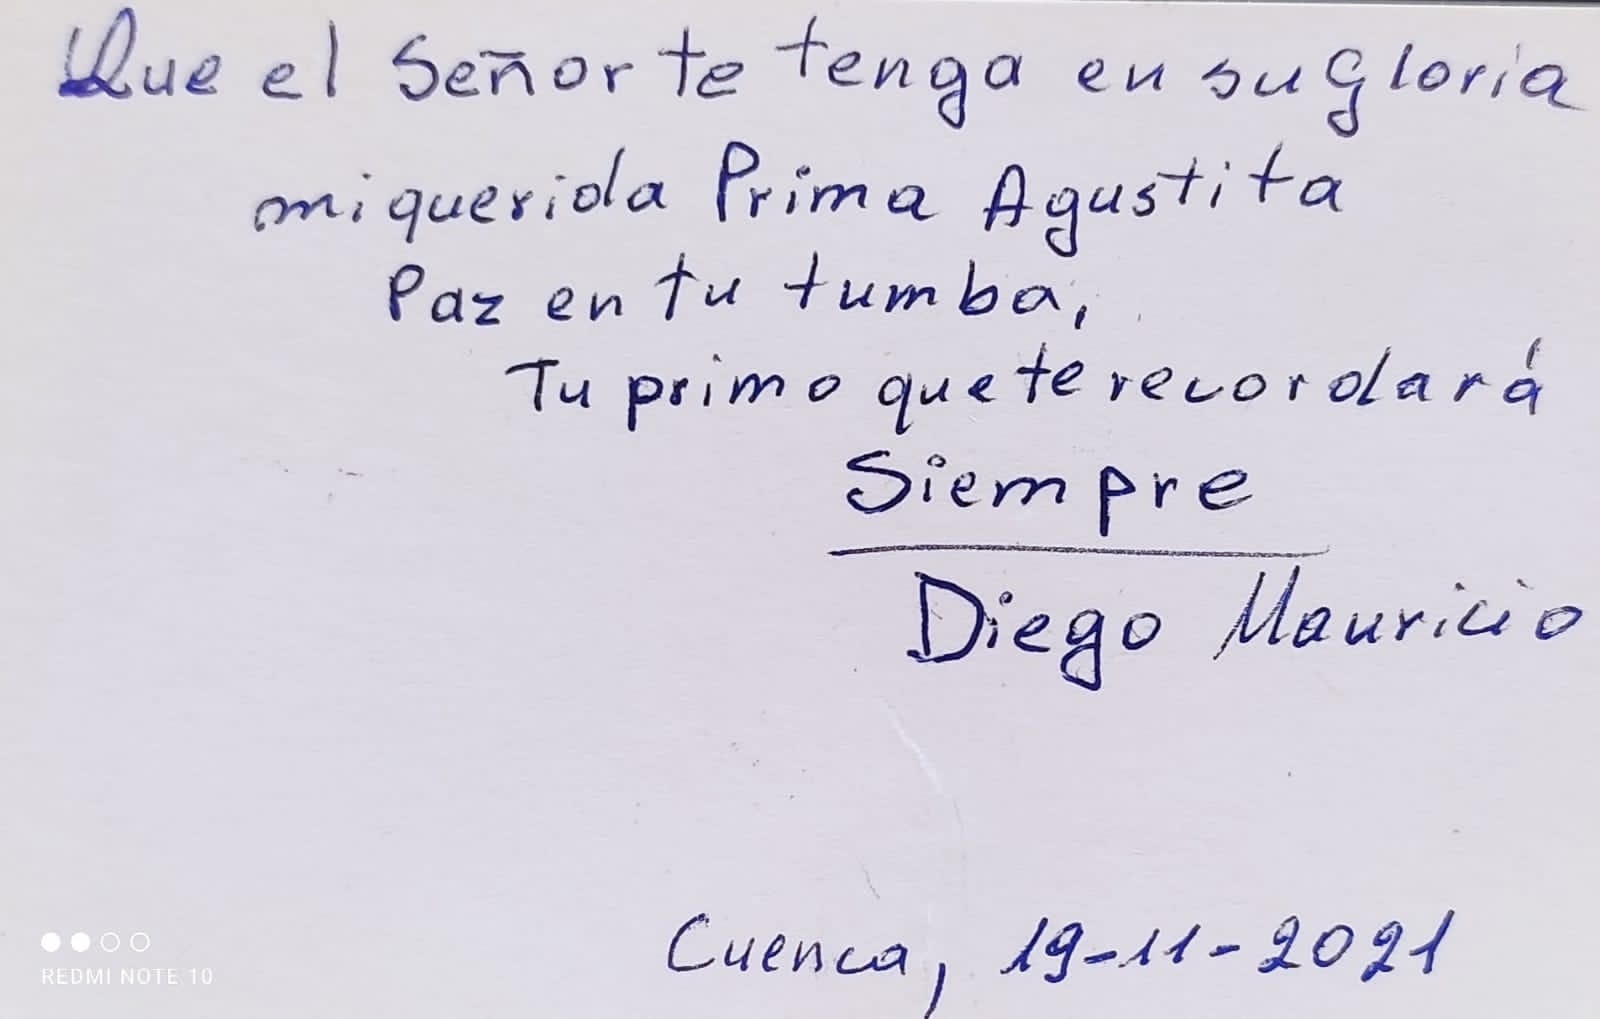 Que el Señor te tenga en su Gloria
mi querida Prima Agustita
Paz en tu tumba,
Tu primo que te recordará
Siempre
Diego Mauricio
Cuenca, 19-11-2021
REDMI NOTE 10